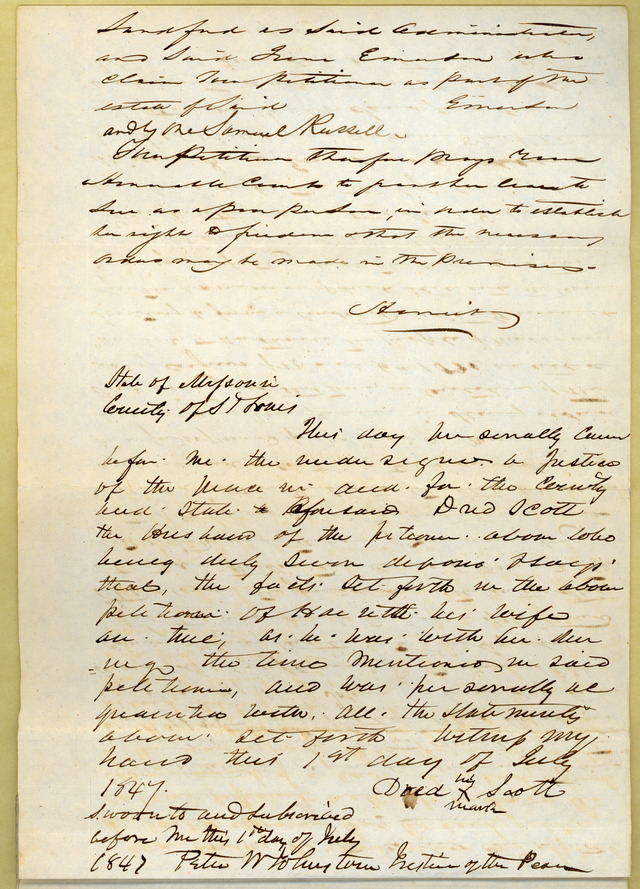 Sandford as said administrator,
and said Irene Emerson who
claim Your Petitioner as part of the
estate of said Emerson
and by one Samuel Russell.
Your Petitioner therefore prays Your
Honorable Court to grant her leave to
sue as a poor person, in order to establish
her right to freedom & that the necessary
orders may be made in the Premises
Harriet
State of Missouri
County of St Louis
This day personally came
before me the undersigned a Justice
of the peace in and for the County
and State aforesaid Dred Scott
the Husband of the petioner above who
being duly sworn deposes & says
that, the facts set forth in the above
petition of Harriett his wife
are true, as he was with her dur
ing the time mentioned in said
petition, and was personally ac
quainted with, all the statements
above set forth witness my
hand this 1st day of July
1847. Dred his X mark Scott
Sworn to and subscribed
before me this 1st day of July
1847 Peter W Johnstown Justice of the Peace